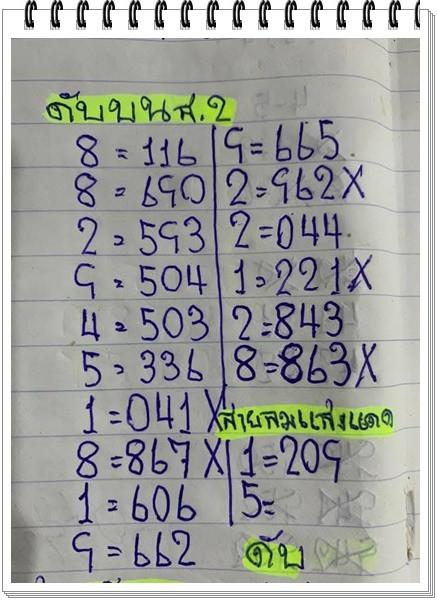 ดับบนส.2
8 = 116
8 = 690
2 = 593
9 = 504
4 = 503
5 = 336
1 = 041 X
8 = 867 X
1 = 606
9 = 662
9 = 665
2 = 962 X
2 = 044
1 = 221 X
2 = 843
8 = 863 X
สายลมแสงแดด
1 = 209
5 =
ดับ